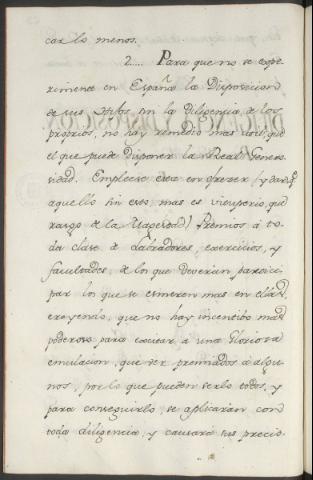 car lo menos.
2.... Para que no se expe-
rimente en España la Disposicion
de sus Hilos sin la Diligencia, de los
proprios, no hay remedio mas util, que
el que puede disponer la Real Genero-
sidad. Empleese esta en ofrezer (y dar q.e
aquello sin esto, mas es vituperio, que
rasgo de la Magestad) Premios á to-
da clase de Labradores, exercicios, y
facultades, de los que deverian partici-
par los que se esmeren mas en ellas,
creyendo, que no hay incentibo mas
poderoso para excitar á una Gloriosa
emulacion, que ver premiados á algu-
nos, por lo que pueden serlo todos, y
para conseguirlo, se aplicarán con
toda diligencia, y causará sus precio-